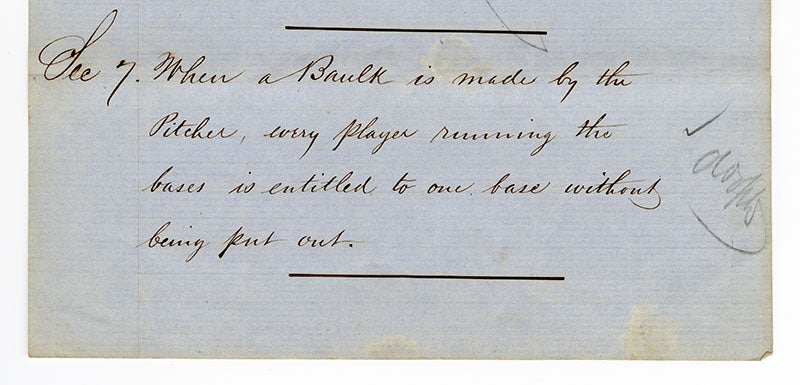 Sec 7. When a Baulk is made by the
Pitcher, every player running the
bases is entitled to one base without
being put out.
adopted